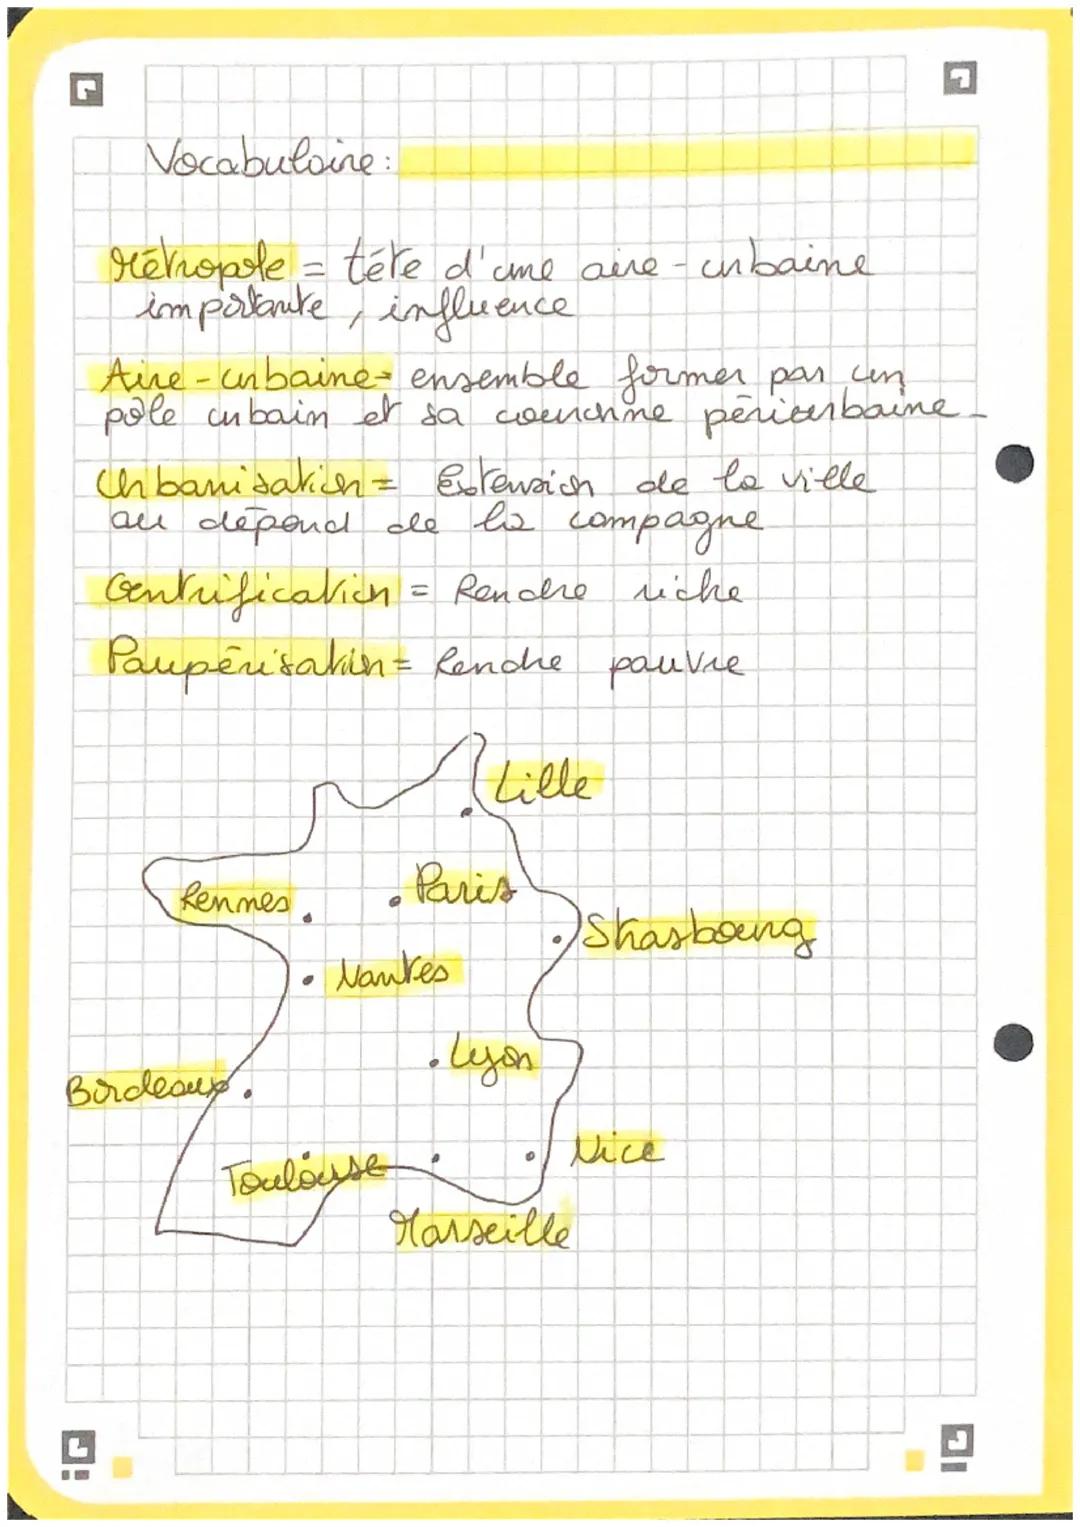 Vocabulaire :
Métropole = tête d'une aire-urbaine
importante, influence
Aire-urbaine = ensemble former par un
pôle urbain et sa courchne périurbaine.
Urbanisation = Extension de la ville
au dépend de la campagne
Gentrification = Rendre riche
Paupérisation = Rendre pauvre
Lille
Paris
Rennes
Strasbourg
Nantes
Lyon
Bordeaux
Nice
Toulouse
Marseille